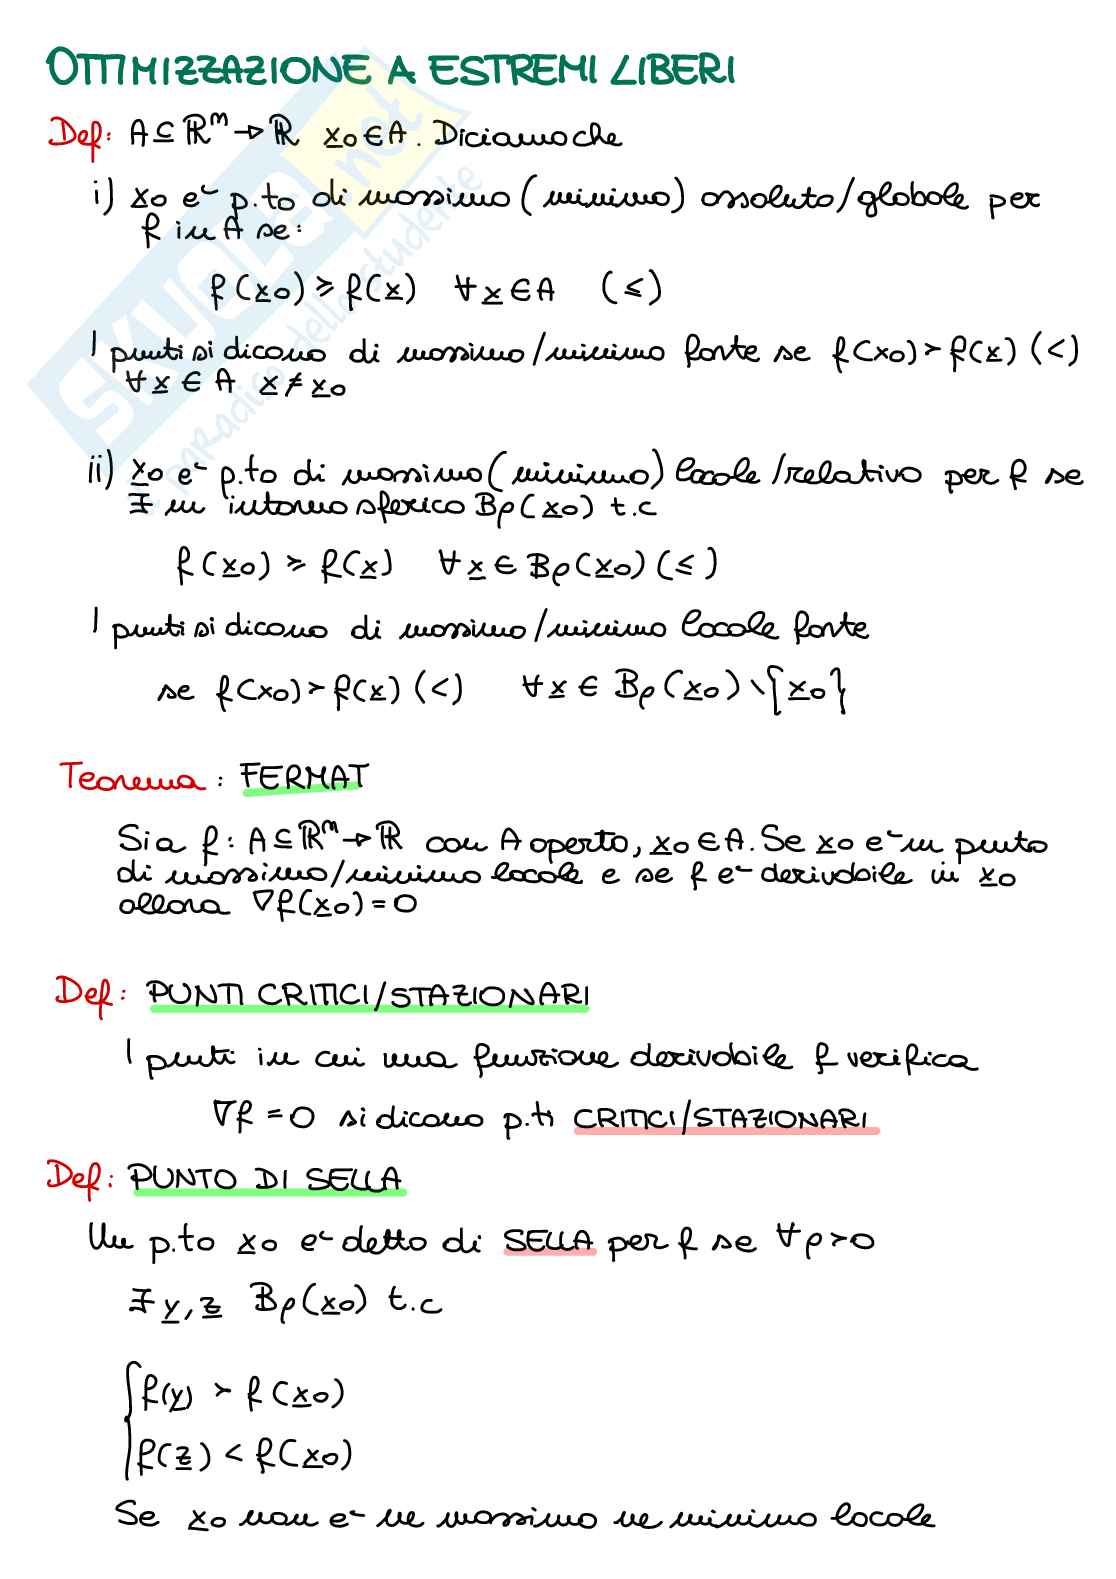 OTTIMIZZAZIONE A ESTREMI LIBERI
Def: A ⊆ ℝᵐ → ℝ x̲₀ ∈ A. Diciamo che
i) x̲₀ è p.to di massimo (minimo) assoluto/globale per
f in A se:
f(x̲₀) ≥ f(x̲) ∀ x̲ ∈ A (≤)
I punti si dicono di massimo/minimo forte se f(x₀) > f(x̲) (<)
∀ x̲ ∈ A x̲ ≠ x̲₀
ii) x̲₀ è p.to di massimo (minimo) locale/relativo per f se
∃ un intorno sferico Bρ(x̲₀) t.c
f(x̲₀) ≥ f(x̲) ∀ x̲ ∈ Bρ(x̲₀) (≤)
I punti si dicono di massimo/minimo locale forte
se f(x₀) > f(x̲) (<) ∀ x̲ ∈ Bρ(x̲₀) \ {x̲₀}
Teorema: FERMAT
Sia f: A ⊆ ℝᵐ → ℝ con A aperto, x̲₀ ∈ A. Se x̲₀ è un punto
di massimo/minimo locale e se f è derivabile in x̲₀
allora ∇f(x̲₀) = 0
Def: PUNTI CRITICI/STAZIONARI
I punti in cui una funzione derivabile f verifica
∇f = 0 si dicono p.ti CRITICI/STAZIONARI
Def: PUNTO DI SELLA
Un p.to x̲₀ è detto di SELLA per f se ∀ρ>0
∃ y̲, z̲ Bρ(x̲₀) t.c
f(y̲) > f(x̲₀)
f(z̲) < f(x̲₀)
Se x̲₀ non è ne massimo ne minimo locale
SKUOLA.net
il paradiso dello studente